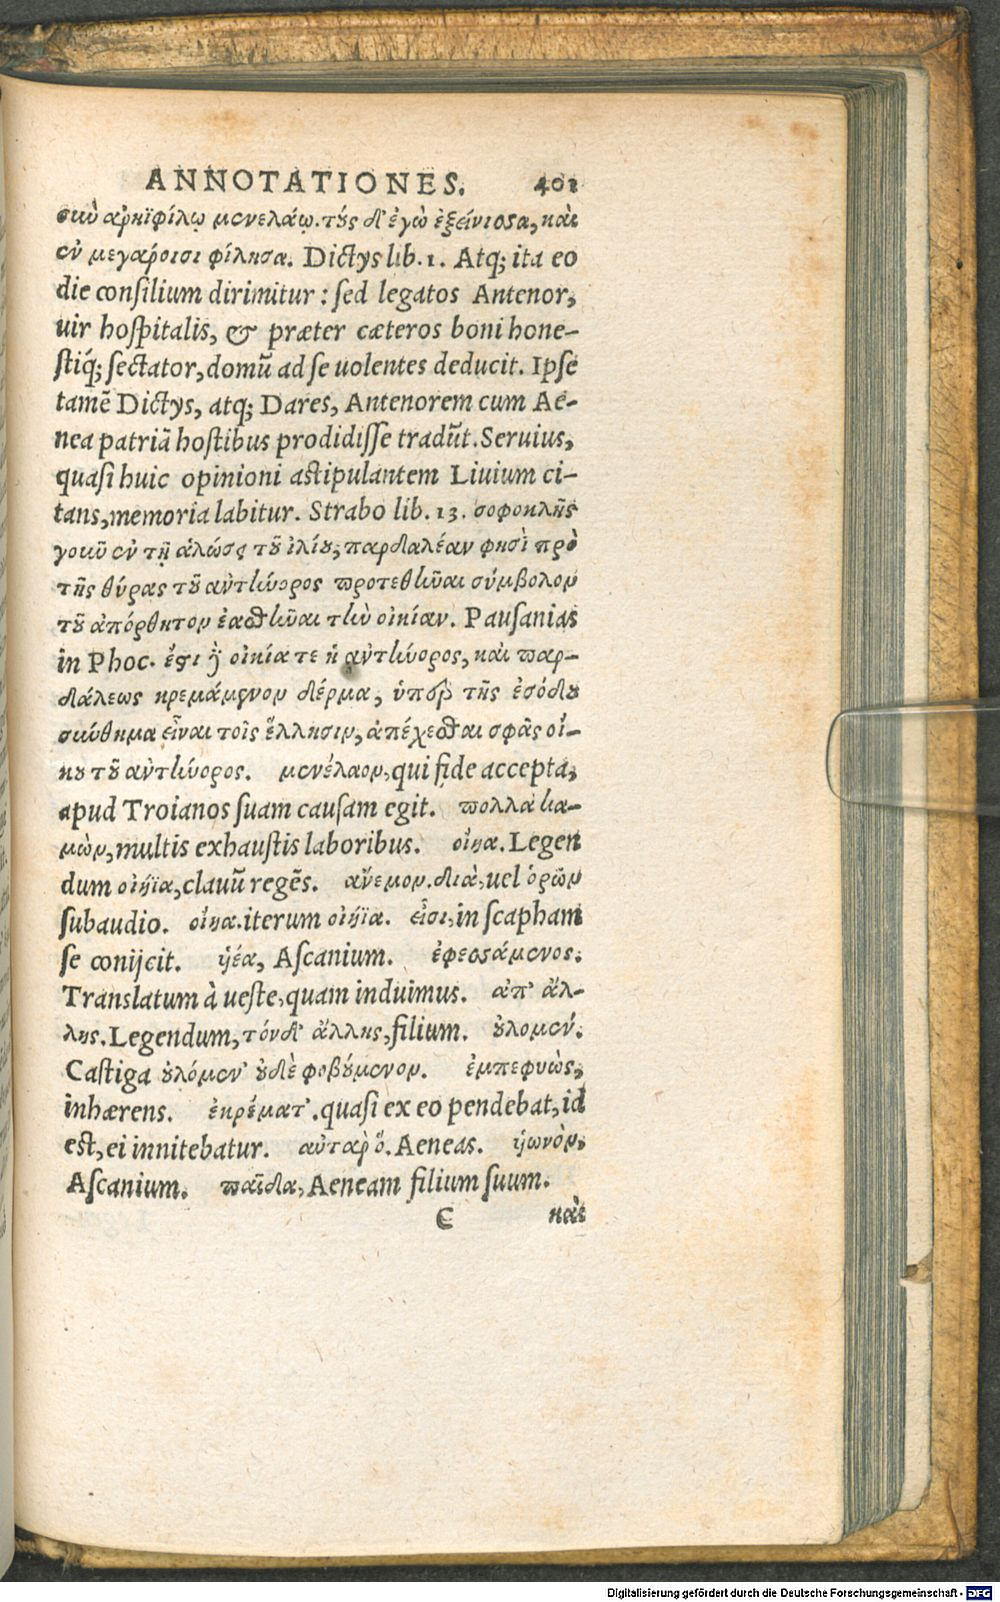 ANNOTATIONES. 401
σὺν ἀρηϊφίλῳ μενελάῳ. τοὺς δ' ἐγὼ ἐξείνισσα, καὶ
ἐν μεγάροισι φίλησα. Dictys lib. 1. Atq; ita eo
die consilium dirimitur: sed legatos Antenor,
uir hospitalis, & præter cæteros boni hone-
stiq́; sectator, domũ ad se uolentes deducit. Ipse
tamẽ Dictys, atq; Dares, Antenorem cum Ae-
nea patriã hostibus prodidisse tradũt. Seruius,
quasi huic opinioni astipulantem Liuium ci-
tans, memoria labitur. Strabo lib. 13. σοφοκλῆς
γοῦν ἐν τῇ ἁλώσει τοῦ ἰλίου, παρδαλέαν φησὶ πρὸ
τῆς θύρας τοῦ ἀντήνορος προτεθῆναι σύμβολον
τοῦ ἀπόρθητον ἐαθῆναι τὴν οἰκίαν. Pausanias
in Phoc. ἔστι δὲ οἰκία τε ἡ ἀντήνορος, καὶ παρ-
δάλεως κρεμάμενον δέρμα, ὑπὲρ τῆς ἐσόδου
σύνθημα εἶναι τοῖς ἕλλησιν, ἀπέχεσθαι σφᾶς οἴ-
κου τοῦ ἀντήνορος. μενέλαον, qui fide accepta,
apud Troianos suam causam egit. πολλὰ κα-
μὼν, multis exhaustis laboribus. οἴηα. Legen
dum οἰήϊα, clauũ regẽs. ἄνεμον. διὰ, uel ὁρῶν
subaudio. οἴηα. iterum οἰήϊα. εἶσι, in scapham
se conijcit. ὑέα, Ascanium. ἐφεσσάμενος.
Translatum à ueste, quam induimus. ἀπ' ἄλ-
λης. Legendum, τόνδ' ἄλλης, filium. οὐλομεν.
Castiga οὐλόμεν' οὐδὲ φοβούμενον. ἐμπεφυὼς,
inhærens. ἐκρέματ'. quasi ex eo pendebat, id
est, ei innitebatur. αὐτὰρ ὅ. Aeneas. ὑωνὸν,
Ascanium. παῖδα, Aeneam filium suum.
C καὶ
Digitalisierung gefördert durch die Deutsche Forschungsgemeinschaft - DFG